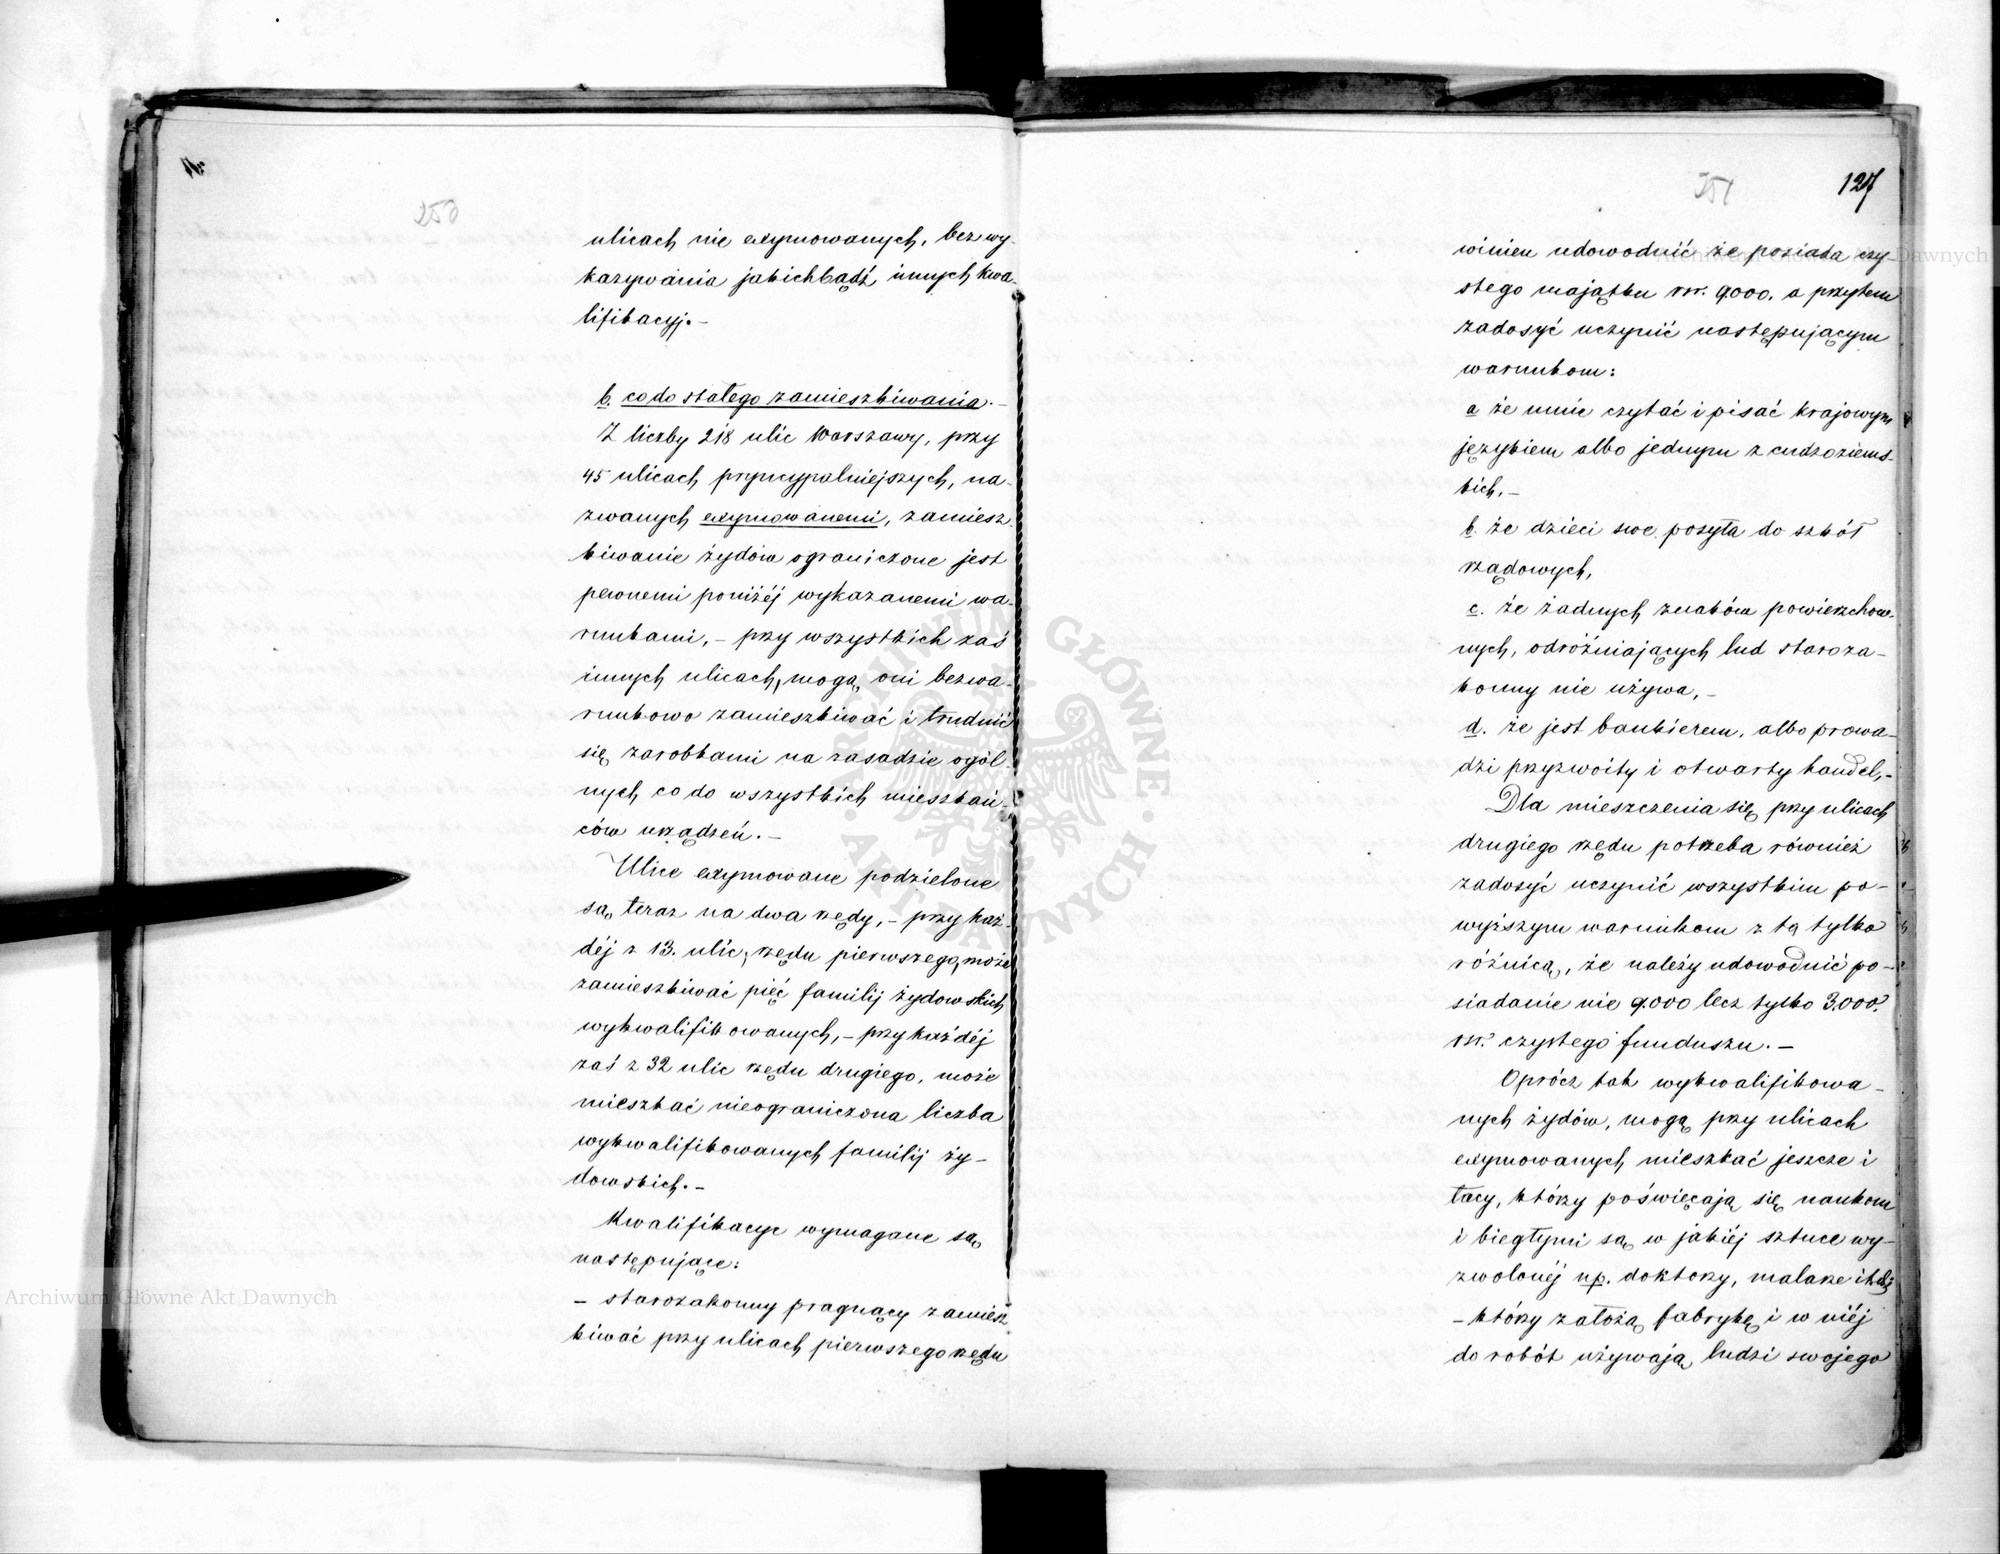 250
ulicach nie exymowanych, bez wy-
kazywania jakichbądź innych kwa-
lifikacyj. –
b. co do stałego zamieszkiwania. –
Z liczby 218 ulic Warszawy, przy
45 ulicach pryncypalniejszych, na-
zwanych exymowanemi, zamiesz
kiwanie żydów ograniczone jest
pewnemi poniżéj wykazanemi wa-
runkami, – przy wszystkich zaś
innych ulicach, mogą oni bezwa-
runkowo zamieszkiwać i trudnić
się zarobkami na zasadzie ogól-
nych co do wszystkich mieszkań-
ców urządzeń. –
Ulice exymowane podzielone
są teraz na dwa rzędy, – przy każ-
déj z 13. ulic, rzędu pierwszego, może
zamieszkiwać pięć familij żydowskich
wykwalifikowanych, – przy każdéj
zaś z 32 ulic rzędu drugiego, może
mieszkać nieograniczona liczba
wykwalifikowanych familij ży-
dowskich. –
Kwalifikacye wymagane są
następujące:
– starozakonny pragnący zamiesz
kiwać przy ulicach pierwszego rzędu
251
127
winien udowodnić że posiada czy-
stego majątku rsr. 9.000. a przytem
zadosyć uczynić następującym
warunkom:
a że umie czytać i pisać krajowym
językiem albo jednym z cudzoziems-
kich, –
b. że dzieci swe posyła do szkół
rządowych,
c. że żadnych znaków powierzchow-
nych, odróżniających lud staroza-
konny nie używa, –
d. że jest bankierem, albo prowa-
dzi przyzwoity i otwarty handel, –
Dla mieszczenia się przy ulicach
drugiego rzędu potrzeba również
zadosyć uczynić wszystkim po-
wyższym warunkom z tą tylko
różnicą, że należy udowodnić po-
siadanie nie 9.000 lecz tylko 3.000.
rsr. czystego funduszu. –
Oprócz tak wykwalifikowa-
nych żydów, mogą przy ulicach
exymowanych mieszkać jeszcze i
tacy, którzy poświęcają się naukom
i biegłymi są w jakiéj sztuce wy-
zwolonéj np. doktorzy, malarze itd.
– którzy założą fabrykę i w niéj
do robót używają ludzi swojego
Archiwum Główne Akt Dawnych
ARCHIWUM GŁÓWNE AKT DAWNYCH